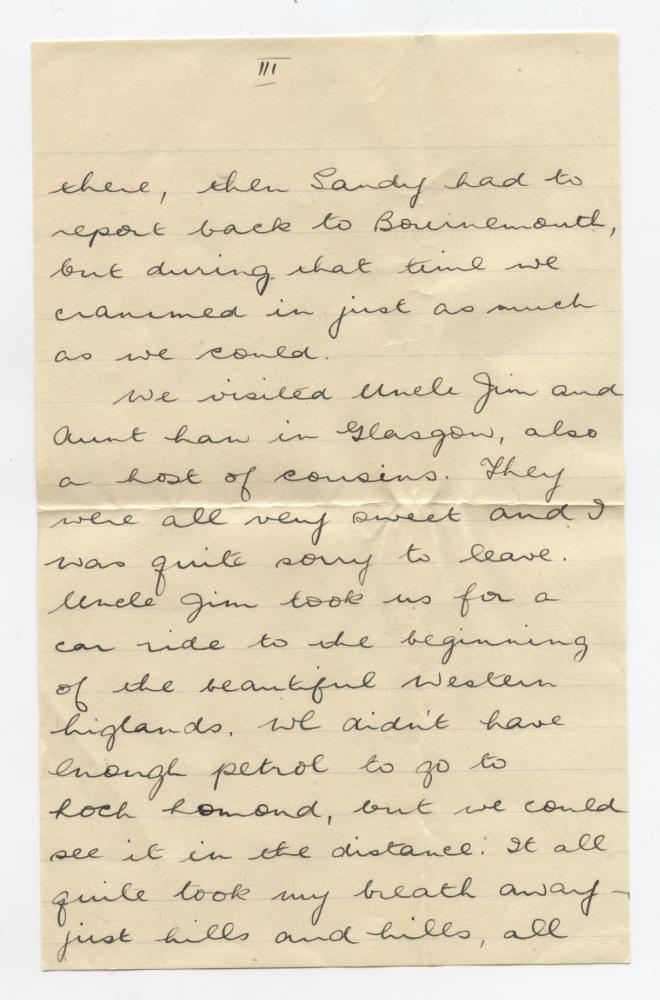 III
there, then Sandy had to
report back to Bournemouth,
but during that time we
crammed in just as much
as we could.
We visited Uncle Jim and
Aunt in Glasgow, also
a host of cousins. They
were all very sweet and I
was quite sorry to leave.
Uncle Jim took us for a
car ride to the beginning
of the beautiful Western
higlands. We didn't have
enough petrol to go to
Loch Lomond, but we could
see it in the distance. It all
quite took my breath away -
just hills and hills, all